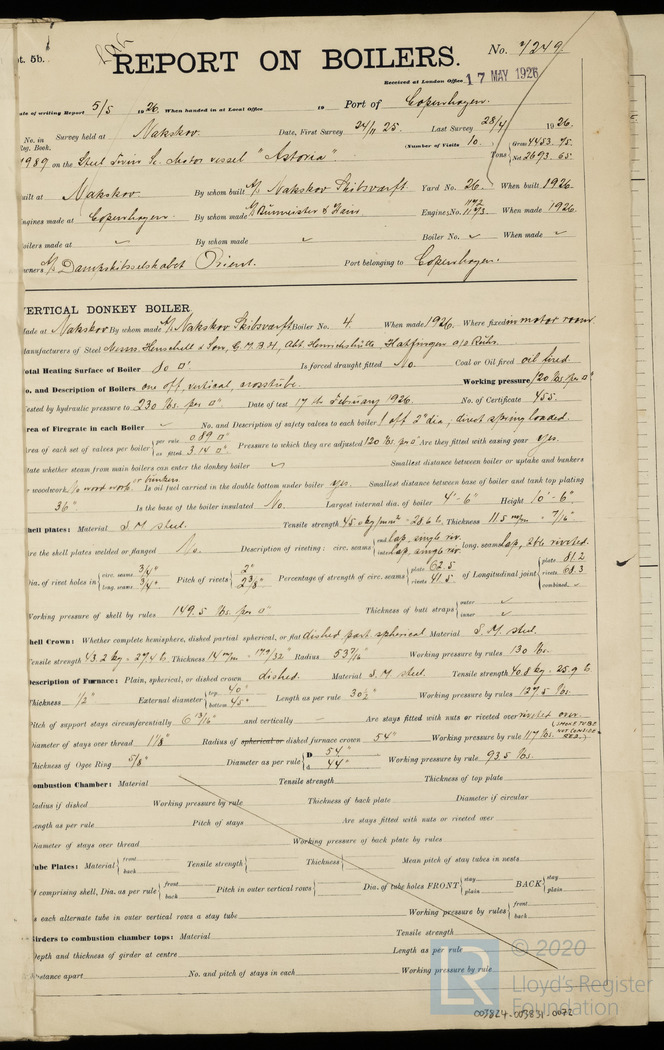 pt. 5b.
REPORT ON BOILERS.
No. 7249.
Received at London Office 17 MAY 1926
ate of writing Report 5/5 1926. When handed in at Local Office 19 Port of Copenhagen.
No. in Survey held at Nakskov. Date, First Survey 24/11 25. Last Survey 28/4 1926.
Reg. Book. (Number of Visits 10.)
1989 on the Steel Twin Sc. Motor vessel "Astoria". Tons { Gross 4453.75 Net 2693.65
uilt at Nakskov. By whom built A/S Nakskov Skibsværft Yard No. 26. When built 1926.
ngines made at Copenhagen. By whom made A/S Burmeister & Wain Engine No. 1172 1173. When made 1926.
oilers made at By whom made Boiler No. When made
wners A/S Dampskibsselskabet Orient. Port belonging to Copenhagen.
VERTICAL DONKEY BOILER
ade at Nakskov By whom made A/S Nakskov Skibsværft Boiler No. 4. When made 1926. Where fixed in motor room
anufacturers of Steel Messrs Henschell & Son, G.M.B.H., Abt. Henrichshütte Hattingen a/o Ruhr.
otal Heating Surface of Boiler 80 □'. Is forced draught fitted No. Coal or Oil fired oil fired
o. and Description of Boilers one off, vertical, crosstube. Working pressure 120 lbs. per □"
ested by hydraulic pressure to 230 lbs. per □" Date of test 17th February 1926. No. of Certificate 455.
rea of Firegrate in each Boiler No. and Description of safety valves to each boiler 1 off 2" dia, direct spring loaded.
rea of each set of valves per boiler { per rule 0.89 □" as fitted 3.14 □" Pressure to which they are adjusted 120 lbs. per □" Are they fitted with easing gear yes.
tate whether steam from main boilers can enter the donkey boiler Smallest distance between boiler or uptake and bunkers
r woodwork No wood work or bunkers. Is oil fuel carried in the double bottom under boiler yes. Smallest distance between base of boiler and tank top plating
36" Is the base of the boiler insulated No. Largest internal dia. of boiler 4'-6" Height 10'-6".
hell plates: Material S.M. steel. Tensile strength 45.0 kg/mm² = 28.6 t. Thickness 11.5 m/m = 7/16"
re the shell plates welded or flanged No. Description of riveting: circ. seams { end lap, single riv. inter. lap, single riv. long. seams lap, dble riveted.
ia. of rivet holes in { circ. seams 3/4" long. seams 3/4" Pitch of rivets { 2" 2 3/8" Percentage of strength of circ. seams { plate 62.5 rivets 41.5 of Longitudinal joint { plate 81.2 rivets 68.3 combined
orking pressure of shell by rules 149.5 lbs. per □" Thickness of butt straps { outer inner
hell Crown: Whether complete hemisphere, dished partial spherical, or flat dished part. spherical Material S.M. steel.
ensile strength 43.2 kg. = 27.4 t. Thickness 14 m/m = 17/32" Radius 53 7/16" Working pressure by rules 130 lbs.
escription of Furnace: Plain, spherical, or dished crown dished. Material S.M. steel. Tensile strength 40.8 kg. = 25.9 t.
hickness 1/2" External diameter { top 40" bottom 45" Length as per rule 30 1/2" Working pressure by rules 127.5 lbs.
itch of support stays circumferentially 6 13/16" and vertically — Are stays fitted with nuts or riveted over riveted over.
iameter of stays over thread 1 1/8" Radius of spherical or dished furnace crown 54" Working pressure by rule 117 lbs. (SMOKE TUBE NOT CONSIDERED.)
hickness of Ogee Ring 5/8" Diameter as per rule { D 54" d 44" Working pressure by rule 93.5 lbs.
ombustion Chamber: Material Tensile strength Thickness of top plate
adius if dished Working pressure by rule Thickness of back plate Diameter if circular
ength as per rule Pitch of stays Are stays fitted with nuts or riveted over
iameter of stays over thread Working pressure of back plate by rules
ube Plates: Material { front back Tensile strength { Thickness { Mean pitch of stay tubes in nests
f comprising shell, Dia. as per rule { front back Pitch in outer vertical rows { Dia. of tube holes FRONT { stay plain BACK { stay plain
s each alternate tube in outer vertical rows a stay tube Working pressure by rules { front back
irders to combustion chamber tops: Material Tensile strength
epth and thickness of girder at centre Length as per rule
istance apart No. and pitch of stays in each Working pressure by rule
© 2020
LR
Lloyd's Register
Foundation
003824-003831-0072